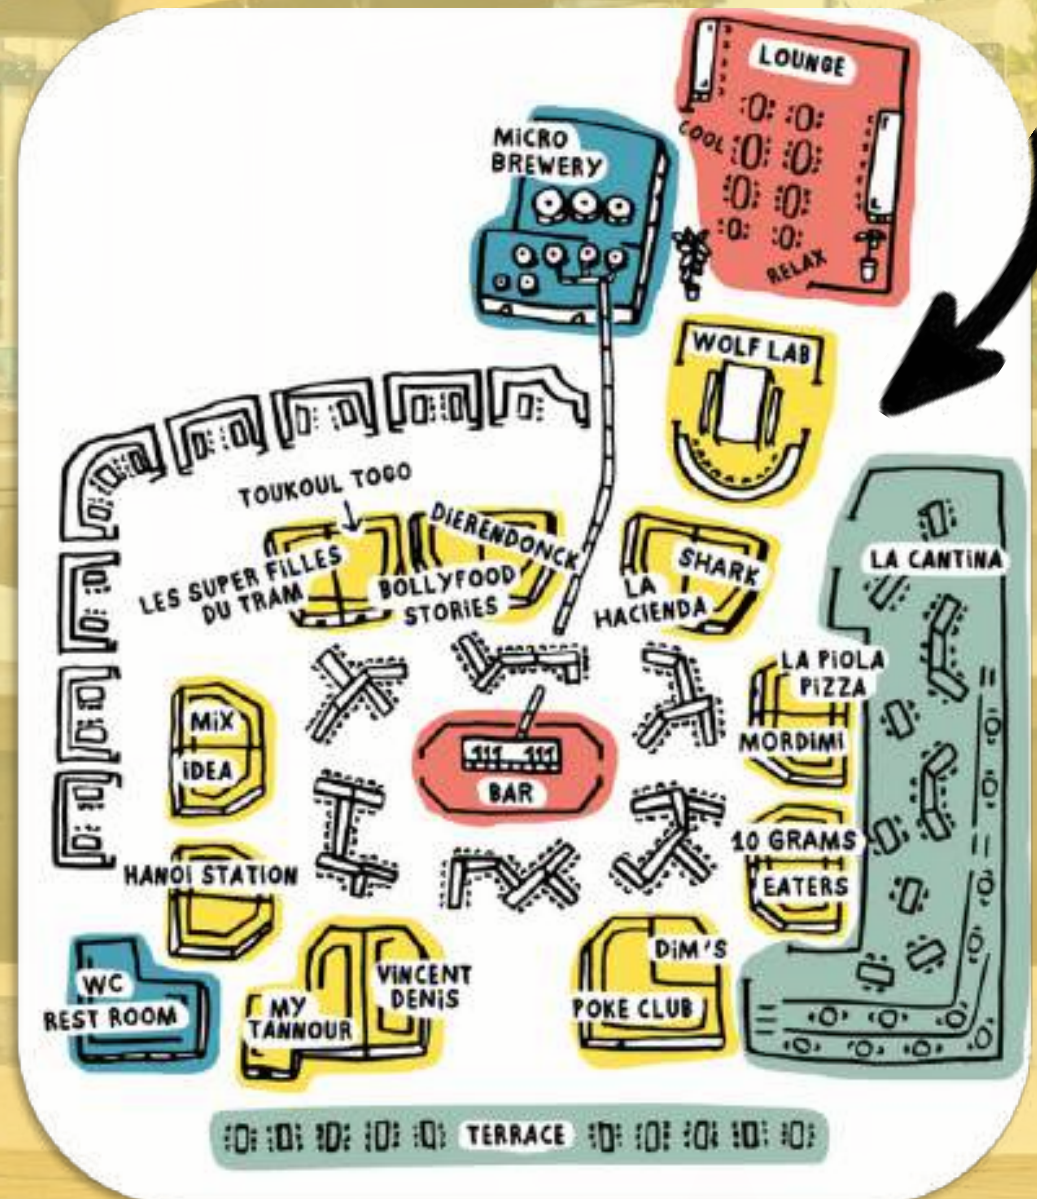 LOUNGE
COOL
RELAX
MiCRO
BREWERY
WOLF LAB
TOUKOUL TOGO
LES SUPER FiLLES
DU TRAM
DiERENDONCK
BOLLYFOOD
STORiES
SHARK
LA
HACiENDA
LA CANTiNA
LA PiOLA
PiZZA
MORDiMi
MiX
iDEA
BAR
10 GRAMS
EATERS
HANOi STATiON
WC
REST ROOM
MY
TANNOUR
ViNCENT
DENiS
DiM'S
POKE CLUB
TERRACE